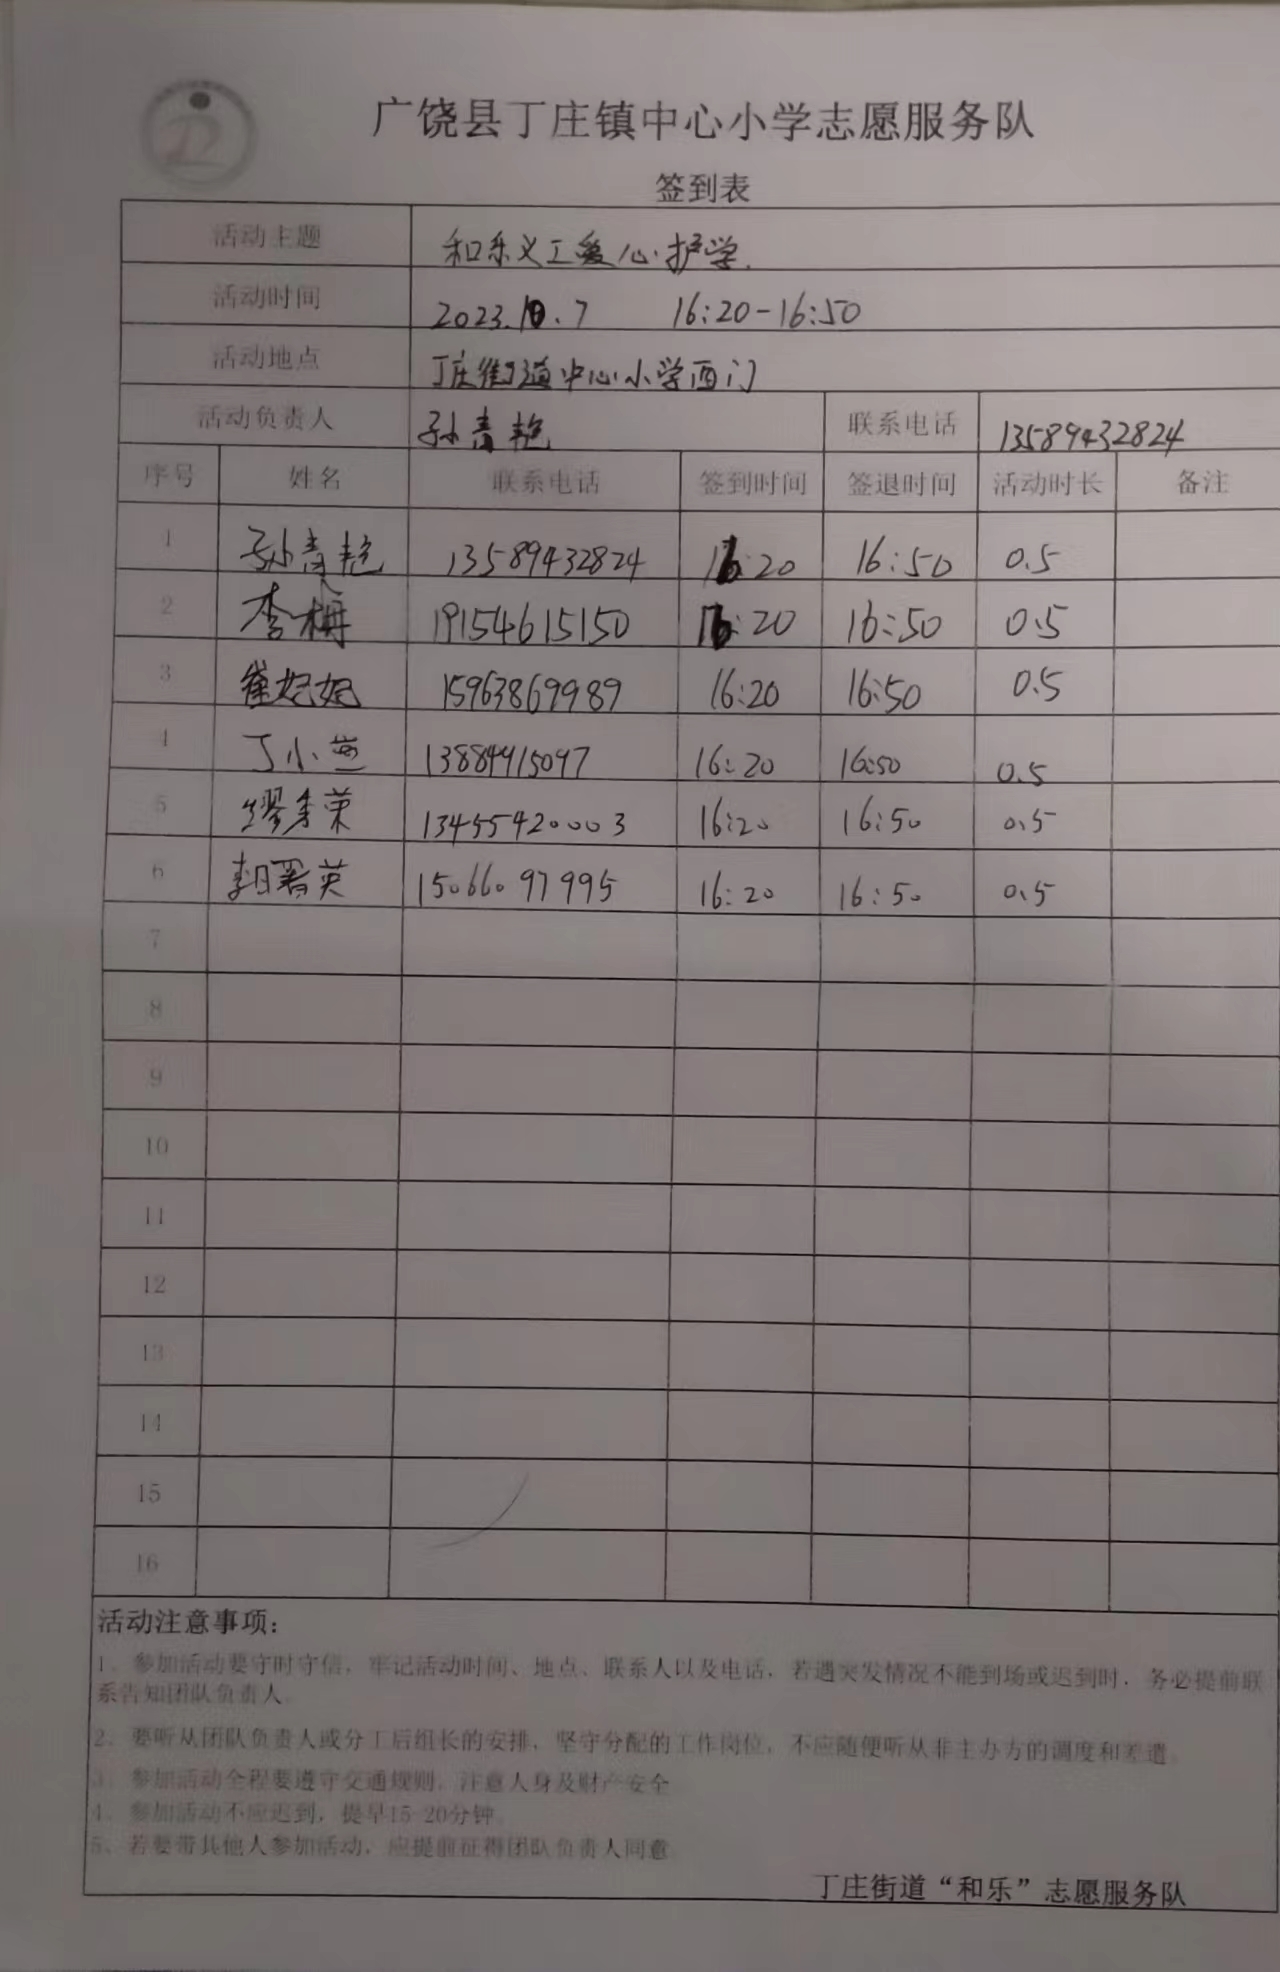 广饶县丁庄镇中心小学志愿服务队
签到表
活动主题 和乐义工爱心护学.
活动时间 2023.10.7 16:20-16:50
活动地点 丁庄街道中心小学西门
活动负责人 孙青艳 联系电话 13589432824
序号 姓名 联系电话 签到时间 签退时间 活动时长 备注
1 孙青艳 13589432824 16:20 16:50 0.5
2 李梅 19154615150 16:20 16:50 0.5
3 崔妃妃 15963869989 16:20 16:50 0.5
4 丁小燕 13884915097 16:20 16:50 0.5
5 缪秀荣 13455420003 16:20 16:50 0.5
6 英 15066097995 16:20 16:50 0.5
7
8
9
10
11
12
13
14
15
16
活动注意事项：
1、参加活动要守时守信，牢记活动时间、地点、联系人以及电话，若遇突发情况不能到场或迟到时，务必提前联
系告知团队负责人
2、要听从团队负责人或分工后组长的安排，坚守分配的工作岗位，不应随便听从非主办方的调度和差遣
3、参加活动全程要遵守交通规则，注意人身及财产安全
4、参加活动不应迟到，提早15-20分钟
5、若要带其他人参加活动，应提前征得团队负责人同意
丁庄街道“和乐”志愿服务队